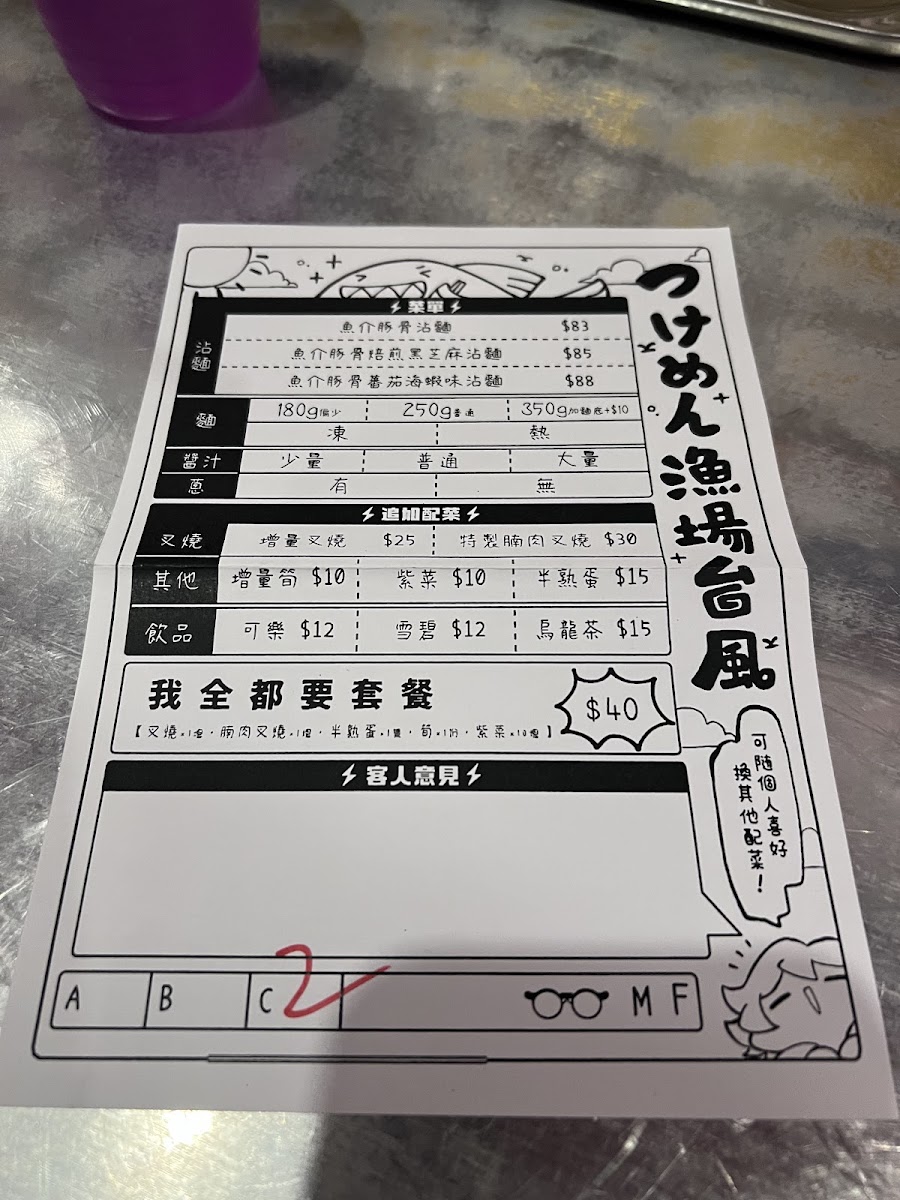 つけめん漁場台風
菜單
沾麵
魚介豚骨沾麵 $83
魚介豚骨焙煎黑芝麻沾麵 $85
魚介豚骨蕃茄海蝦味沾麵 $88
麵 180g偏少 250g普通 350g加麵底+$10
凍 熱
醬汁 少量 普通 大量
蔥 有 無
追加配菜
叉燒 增量叉燒 $25 特製腩肉叉燒 $30
其他 增量筍 $10 紫菜 $10 半熟蛋 $15
飲品 可樂 $12 雪碧 $12 烏龍茶 $15
我全都要套餐 $40
【叉燒×1塊,腩肉叉燒×1塊,半熟蛋×1隻,筍×1份,紫菜×10塊】
可隨個人喜好
換其他配菜!
客人意見
A B C 2 M F